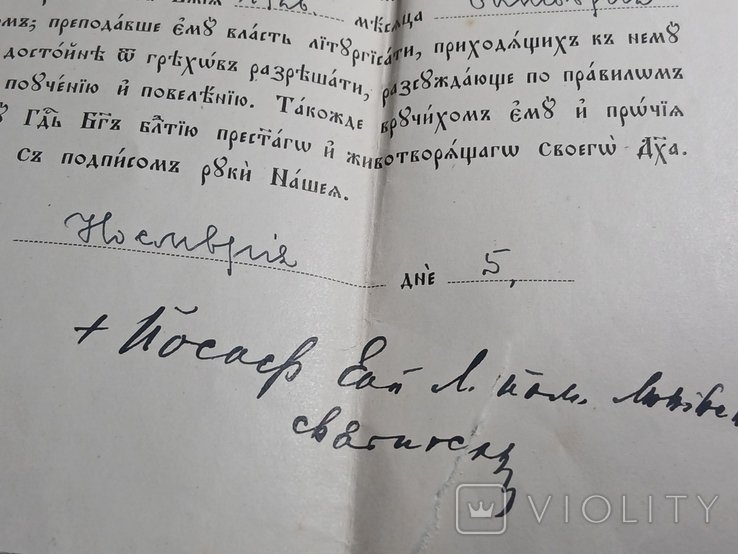 мѣсѧца
омъ; преподавше є҆мꙋ̀ вла́сть лїтꙋргїса́ти, приходѧ́щихъ къ немꙋ̀
досто́йнѣ ѿ грѣхѡ́въ разрѣша́ти, разсꙋжда́юще по пра́вилѡмъ
поꙋче́нїю и҆ повелѣ́нїю. Та́кожде врꙋчи́хомъ є҆мꙋ̀ и҆ прѡ́чїѧ
Гдⷭ҇ь Бг҃ъ блгⷣтїю прест҃а́гѡ и҆ животворѧ́щагѡ своегѡ̀ Дх҃а.
съ подпи́сомъ рꙋкѝ На́шеѧ.
Ноемврія днѐ 5,
+ Йосаф Еп Л.
святитель
VIOLITY